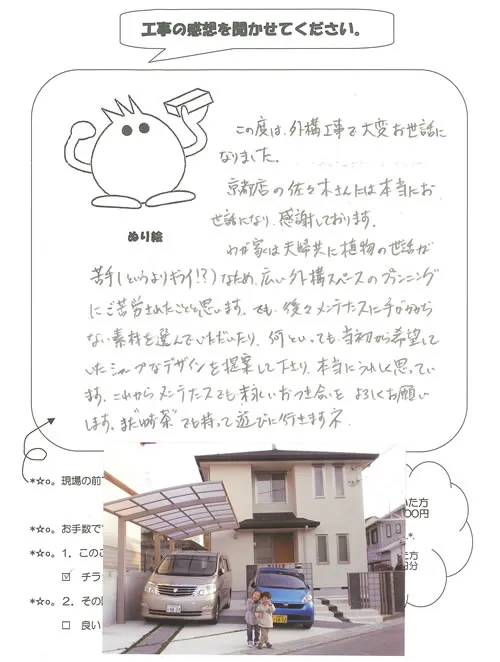 工事の感想を聞かせてください。
この度は、外構工事で大変お世話に
なりました。
京都店の佐々木さんには本当にお
世話になり、感謝しております。
ぬり絵
わが家は夫婦共に植物の世話が
苦手(というよりキライ!?)なため、広い外構スペースのプランニング
にご苦労されたことと思います。でも、後々メンテナスに手がかから
ない素材を選んでいただいたり、何といっても当初から希望して
いたシャープなデザインを提案して下さり、本当にうれしく思ってい
ます。これからメンテナスでも末永いおつき合いを よろしくお願い
します。また
でも持って遊びに行きますネ
*☆o。現場の前
いた方
00円
*☆o。お手数で
*☆o。1. このこ
た方
円分
☑ チラ
*☆o。2. その
□ 良い